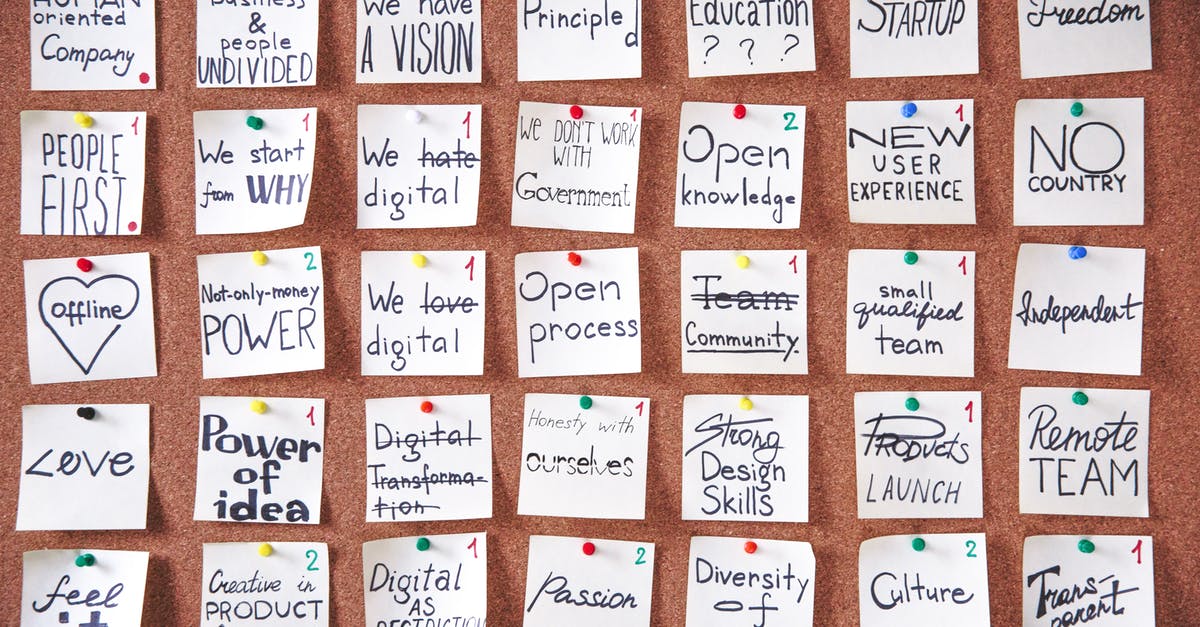 HUMAN
oriented
Company
Business
&
people
UNDIVIDED
We have
A VISION
Principled
Education
? ? ?
STARTUP
Freedom
1
PEOPLE
FIRST
1
We start
from WHY
1
We hate
digital
1
We DON'T WORK
WITH
Government
2
Open
knowledge
1
NEW
USER
EXPERIENCE
NO
COUNTRY
offline
2
Not-only-money
POWER
1
We love
digital
Open
process
1
Team
Community.
1
small
qualified
team
Independent
Love
1
Power
of
idea
Digital
Transforma-
tion
1
Honesty with
ourselves
Strong
Design
Skills
1
Products
LAUNCH
1
Remote
TEAM
feel
it
2
Creative in
PRODUCT
1
Digital
AS
RESTRICTION
2
Passion
Diversity
of
2
Culture
1
Trans-
parent